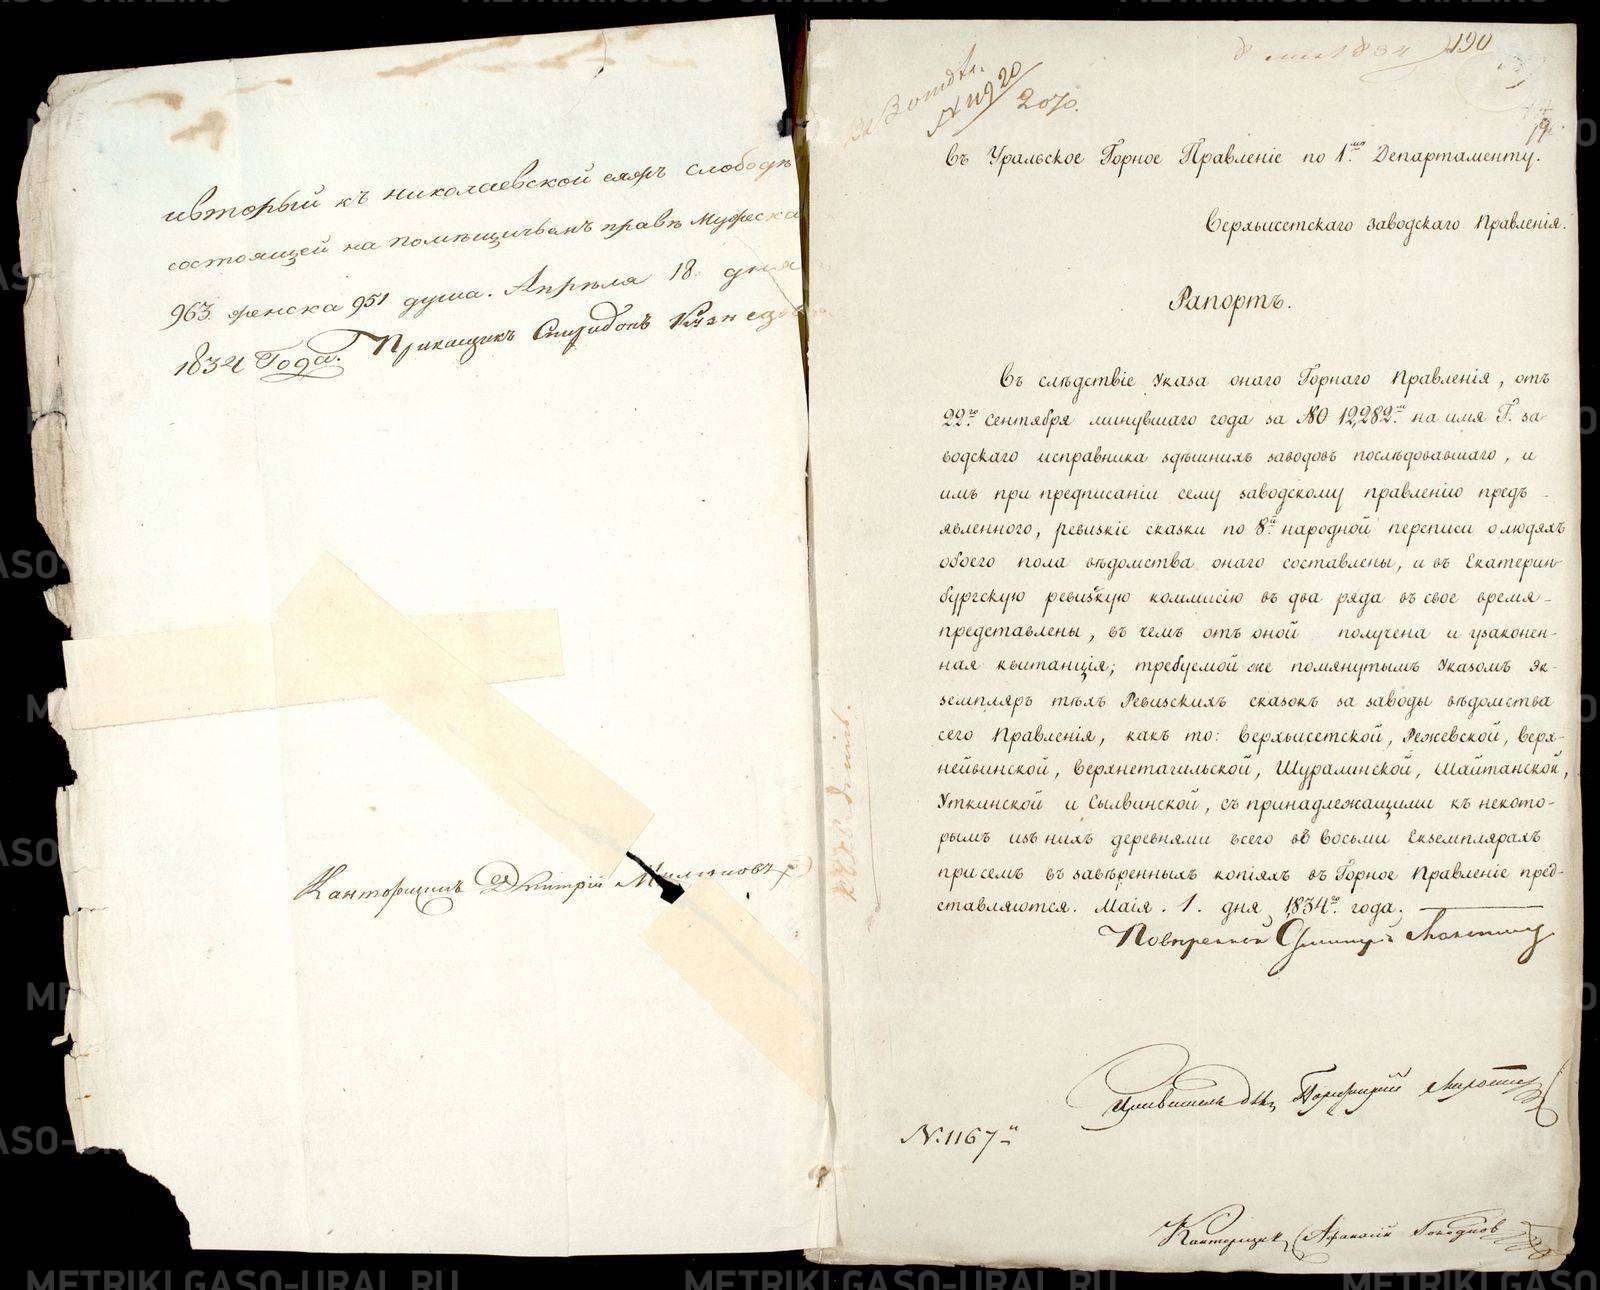 иъторый къ Николаевской слоръ слободѣ
состоящей на помѣщичьемъ правѣ Мужеска
963. женска 951 душа. Апрѣля 18. дня
1834 Года. Прикащикъ Спиридонъ Кузнецовъ
Канторщикъ Дмитрій
190
№ 11920
207.
Въ Уральское Горное Правленіе по 1.му Департаменту.
Верхъисетскаго Заводскаго Правленія.
Рапортъ.
Въ слѣдствіе Указа онаго Горнаго Правленія, отъ
22го сентября минувшаго года за № 12,282м на имя Г. за
водскаго исправника здѣшнихъ заводовъ послѣдовавшаго, и
имъ при предписаніи сему заводскому правленію предъ-
явленного, ревизкіе сказки по 8й народной переписи о людяхъ
обоего пола вѣдомства онаго составлены, и въ Екатерин-
бургскую ревизкую коммисію въ два ряда въ свое время-
представлены, въ чемъ отъ оной получена и узаконен-
ная квитанція; требуемой же помянутымъ Указомъ эк-
земпляръ тѣхъ Ревизскихъ сказокъ за заводы вѣдомства
сего Правленія, какъ то: Верхъисетской, Режевской, Верх-
нейвинской, Верхнетагильской, Шуралинской, Шайтанской,
Уткинской и Сылвинской, съ принадлежащими къ некото-
рымъ изъ нихъ деревнями всего въ восьми Екземплярахъ
присемъ въ завѣренныхъ копіяхъ въ Горное Правленіе пред-
ставляются. Маія. 1. дня 1834го года.
Повѣренной
№. 1167й
Канторщикъ Афанасій
METRIKI.GASO-URAL.RU